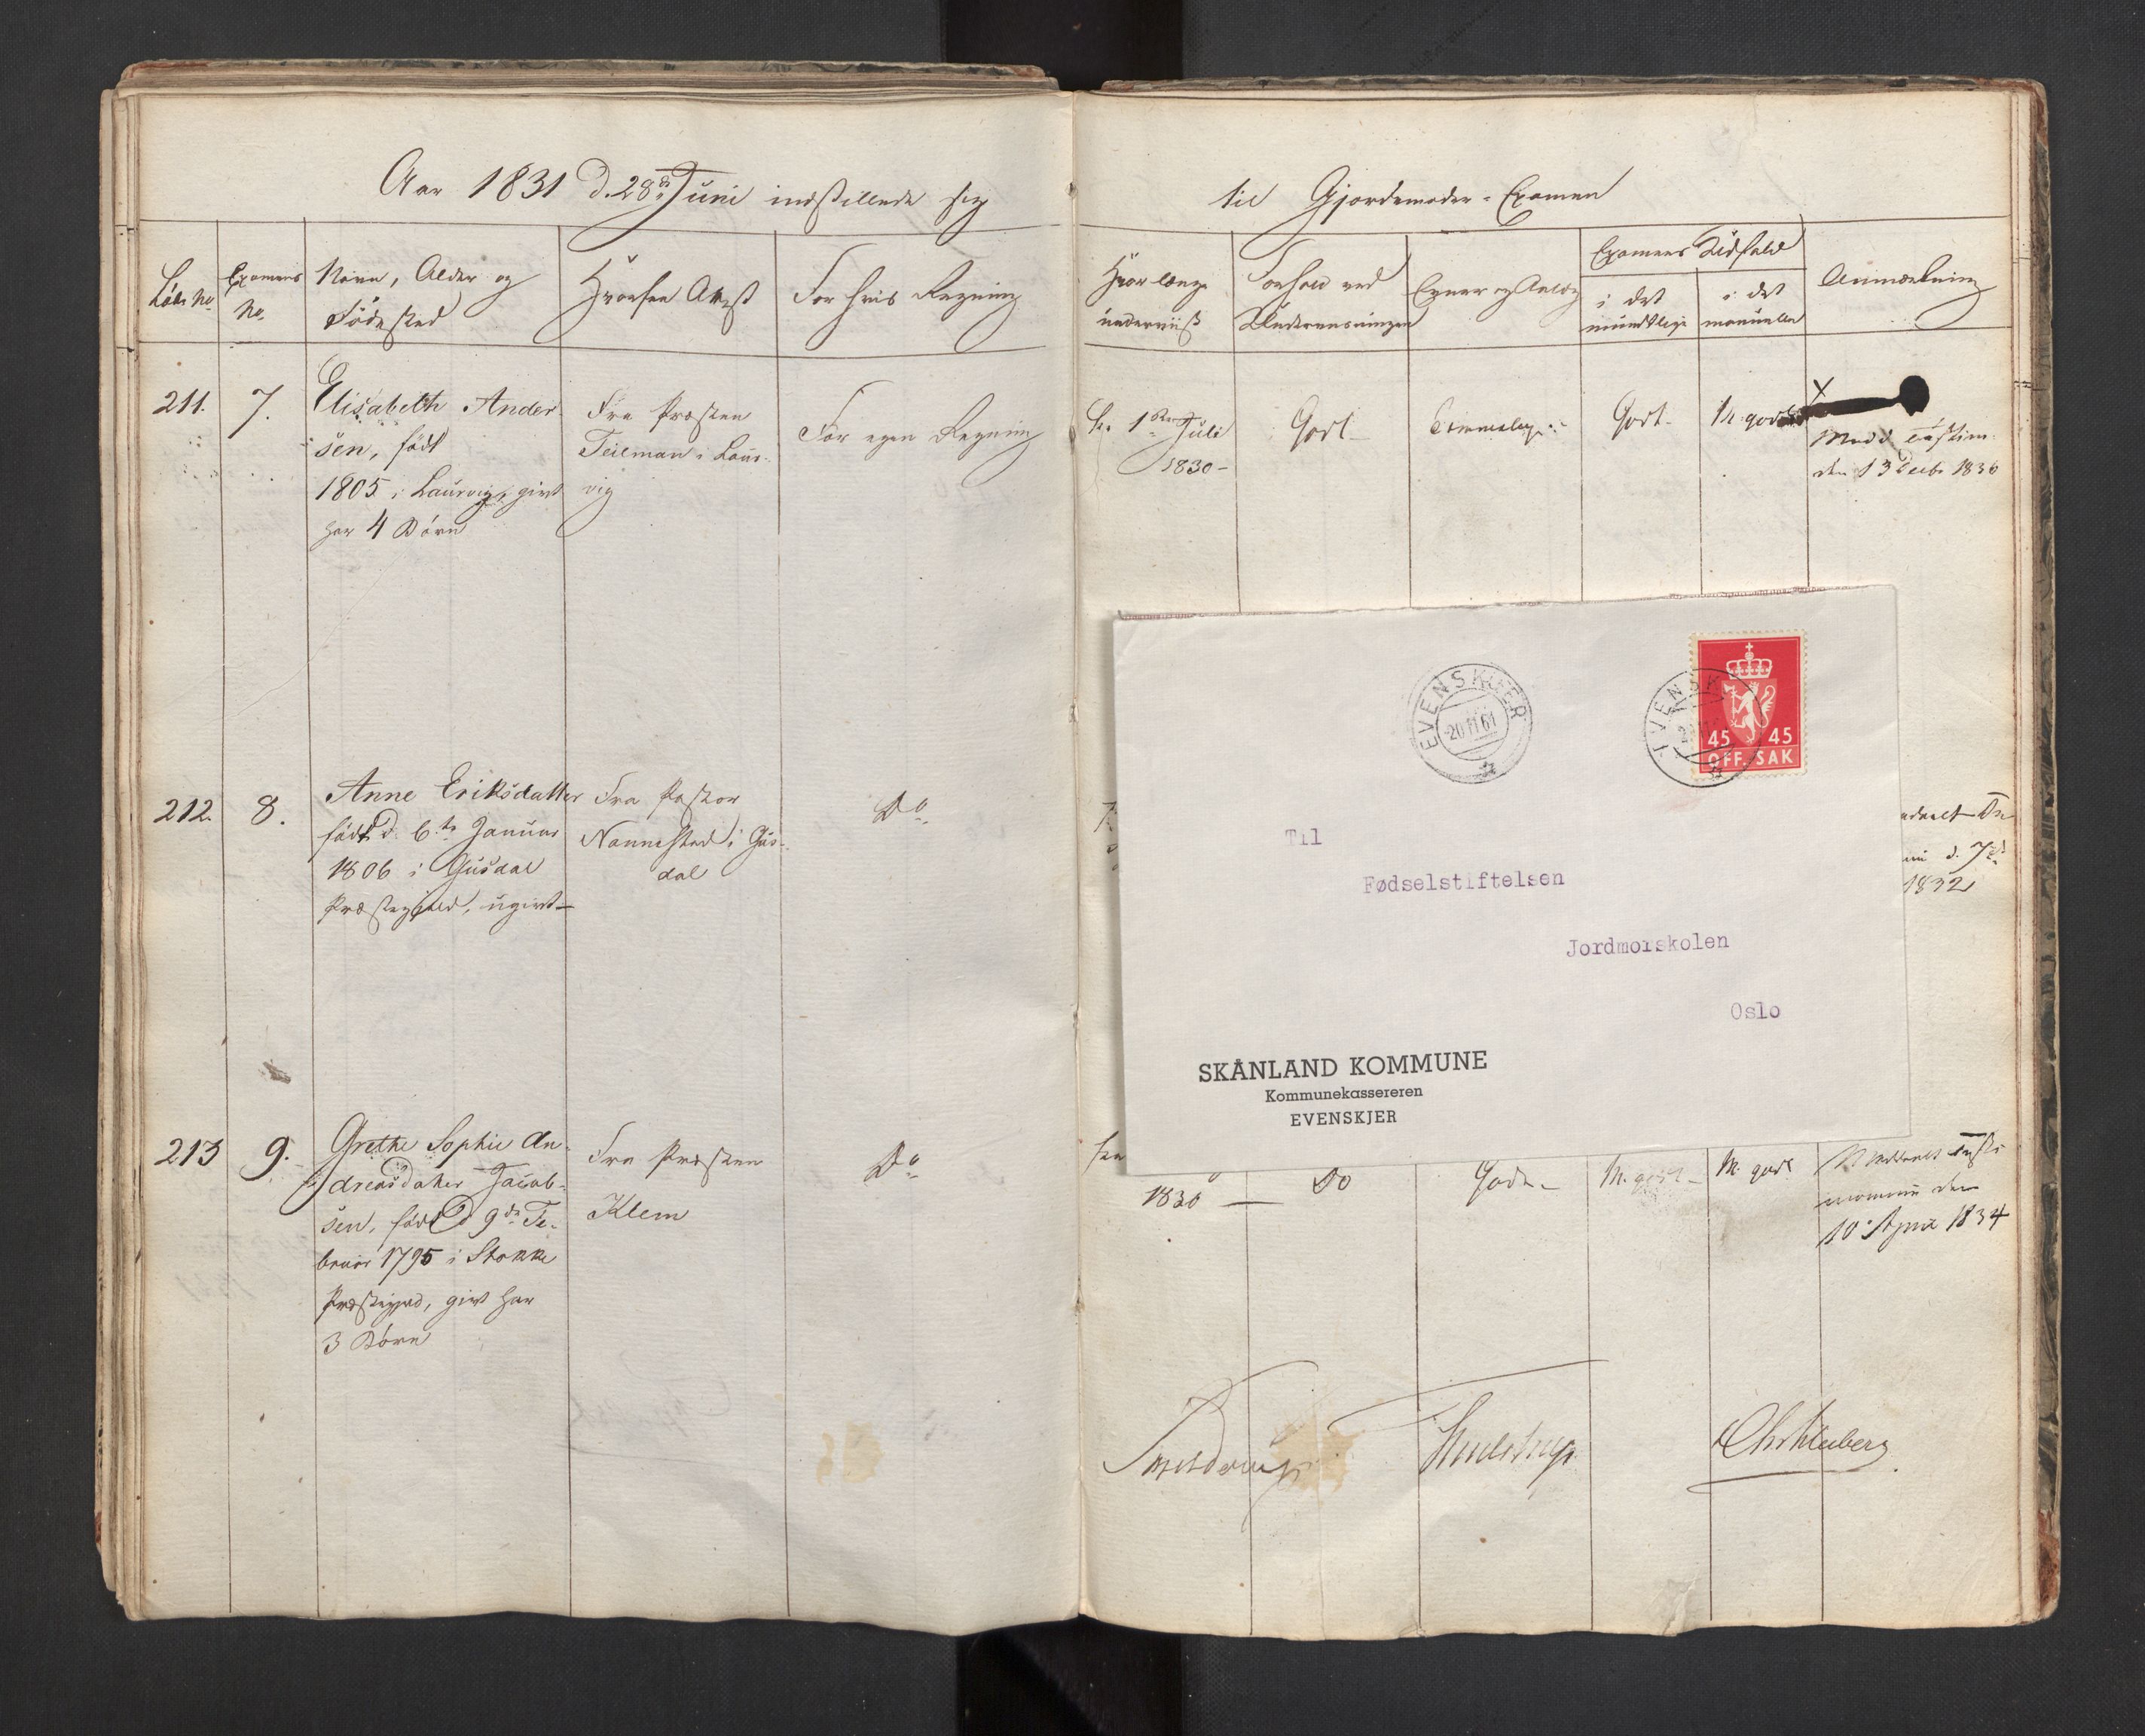 Aar 1831 d. 28de Juni indstillede sig
til Gjordemoder-Examen
Löbe No
Examens No.
Navn, Alder og
Födested
Hvorfra Attest
For hvis Regning
Hvor længe
underviist
Forhold ved
Underviisningen
Evner og Anlæg
Examens Udfald
i det
mundtlige
i det
manuelle
Anmærkning
211.
7.
Elisabeth Ander-
sen, født
1805 i Laurvig, givt
har 4 Börn
Fra Præsten
Teilman i Laur-
vig
For egen Regning
1ste Juli
1830-
Godt-
Temmelige
Godt-
M. godt
X
den 13 Decbr 1836
212.
8.
Anne Eriksdatter
født d. 6te Januar
1806 i Gusdal
Præstegjeld, ugivt
Fra Pastor
Nannestad i Gus-
dal
Do
d. 7de
1832
213
9.
Grethe Sophie An-
dreasdatter Jacob-
sen, født d 9de Fe-
bruar 1795 i Stokke
Præstegjeld, givt har
3 Börn
Fra Præsten
Klem
Do
1830
Do
Gode-
M. godt-
M. godt
Meddeelt Testi-
monium den
10 April 1834
EVENSKJER
20 11 61
EVENSK
45 45
OFF. SAK
Til
Fødselstiftelsen
Jordmorskolen
Oslo
SKÅNLAND KOMMUNE
Kommunekassereren
EVENSKJER